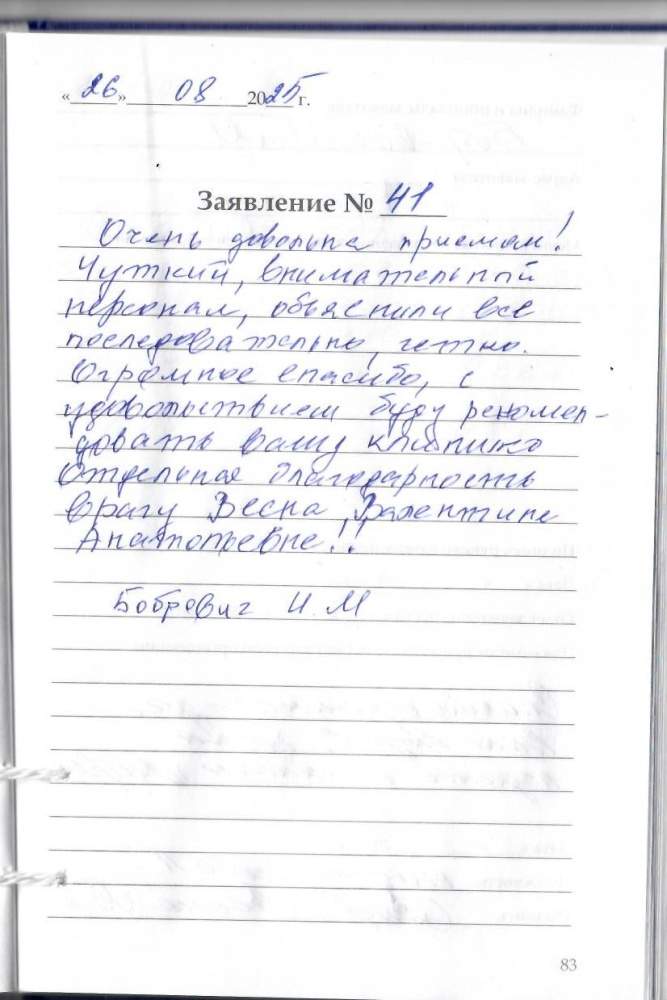 «26» 08 2025 г.
Заявление № 41
Очень довольна приемом!
Чуткий, внимательный
персонал, объяснили все
последовательно, четко.
Огромное спасибо, с
удовольствием буду рекомен-
довать вашу клинику
Отдельная благодарность
врачу Весна Валентине
Анатольевне!!
Бобрович И. М
83